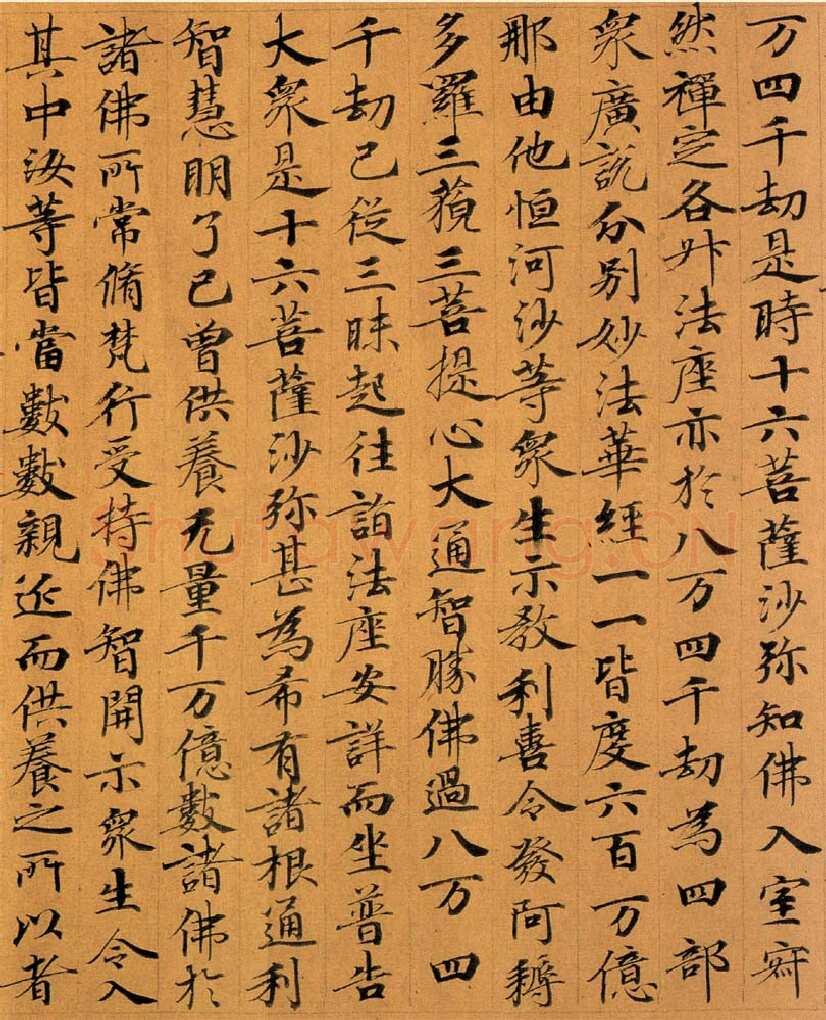 万四千劫是時十六菩薩沙弥知佛入室寂
然禪定各升法座亦於八万四千劫為四部
衆廣說分别妙法華經一一皆度六百万億
那由他恒河沙等衆生示教利喜令發阿耨
多羅三藐三菩提心大通智勝佛過八万四
千劫已從三昧起往詣法座安詳而坐普告
大衆是十六菩薩沙弥甚為希有諸根通利
智慧明了已曾供養无量千万億數諸佛於
諸佛所常脩梵行受持佛智開示衆生令入
其中汝等皆當數數親近而供養之所以者
Shufawang.CN